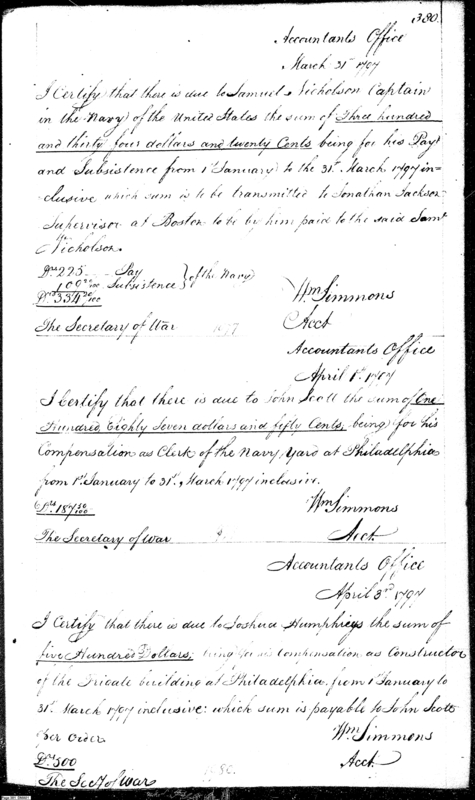 380.
Accountants Office
March 31st 1797
I Certify that there is due to Samuel Nicholson Captain
in the Navy of the United States the sum of Three hundred
and thirty four dollars and twenty Cents being for his Pay
and Subsistence from 1st January to the 31st March 1797 in=
=clusive which sum is to be transmitted to Jonathan Jackson
Supervisor at Boston to be by him paid to the said Saml
Nicholson.
Drs 225 .. — Pay } of the Navy
Subsistence
Drs 334 20/100
Wm Simmons
The Secretary of War
Acct
Accountants Office
April 1st 1797
I Certify that there is due to John Scott the sum of One
Hundred Eighty Seven dollars and fifty Cents, being for his
Compensation as Clerk of the Navy Yard at Philadelphia
from 1st January to 31st March 1797 inclusive.
Drs 187 50/100
Wm Simmons
The Secretary of War
Acct
Accountants Office
April 3rd 1797
I Certify that there is due to Joshua Humphreys the sum of
five Hundred Dollars; being for his compensation as Constructor
of the Frigate building at Philadelphia from 1st January to
31st March 1797 inclusive: which sum is payable to John Scott
per Order
Wm Simmons
Drs 500
Acct
The Secy of War